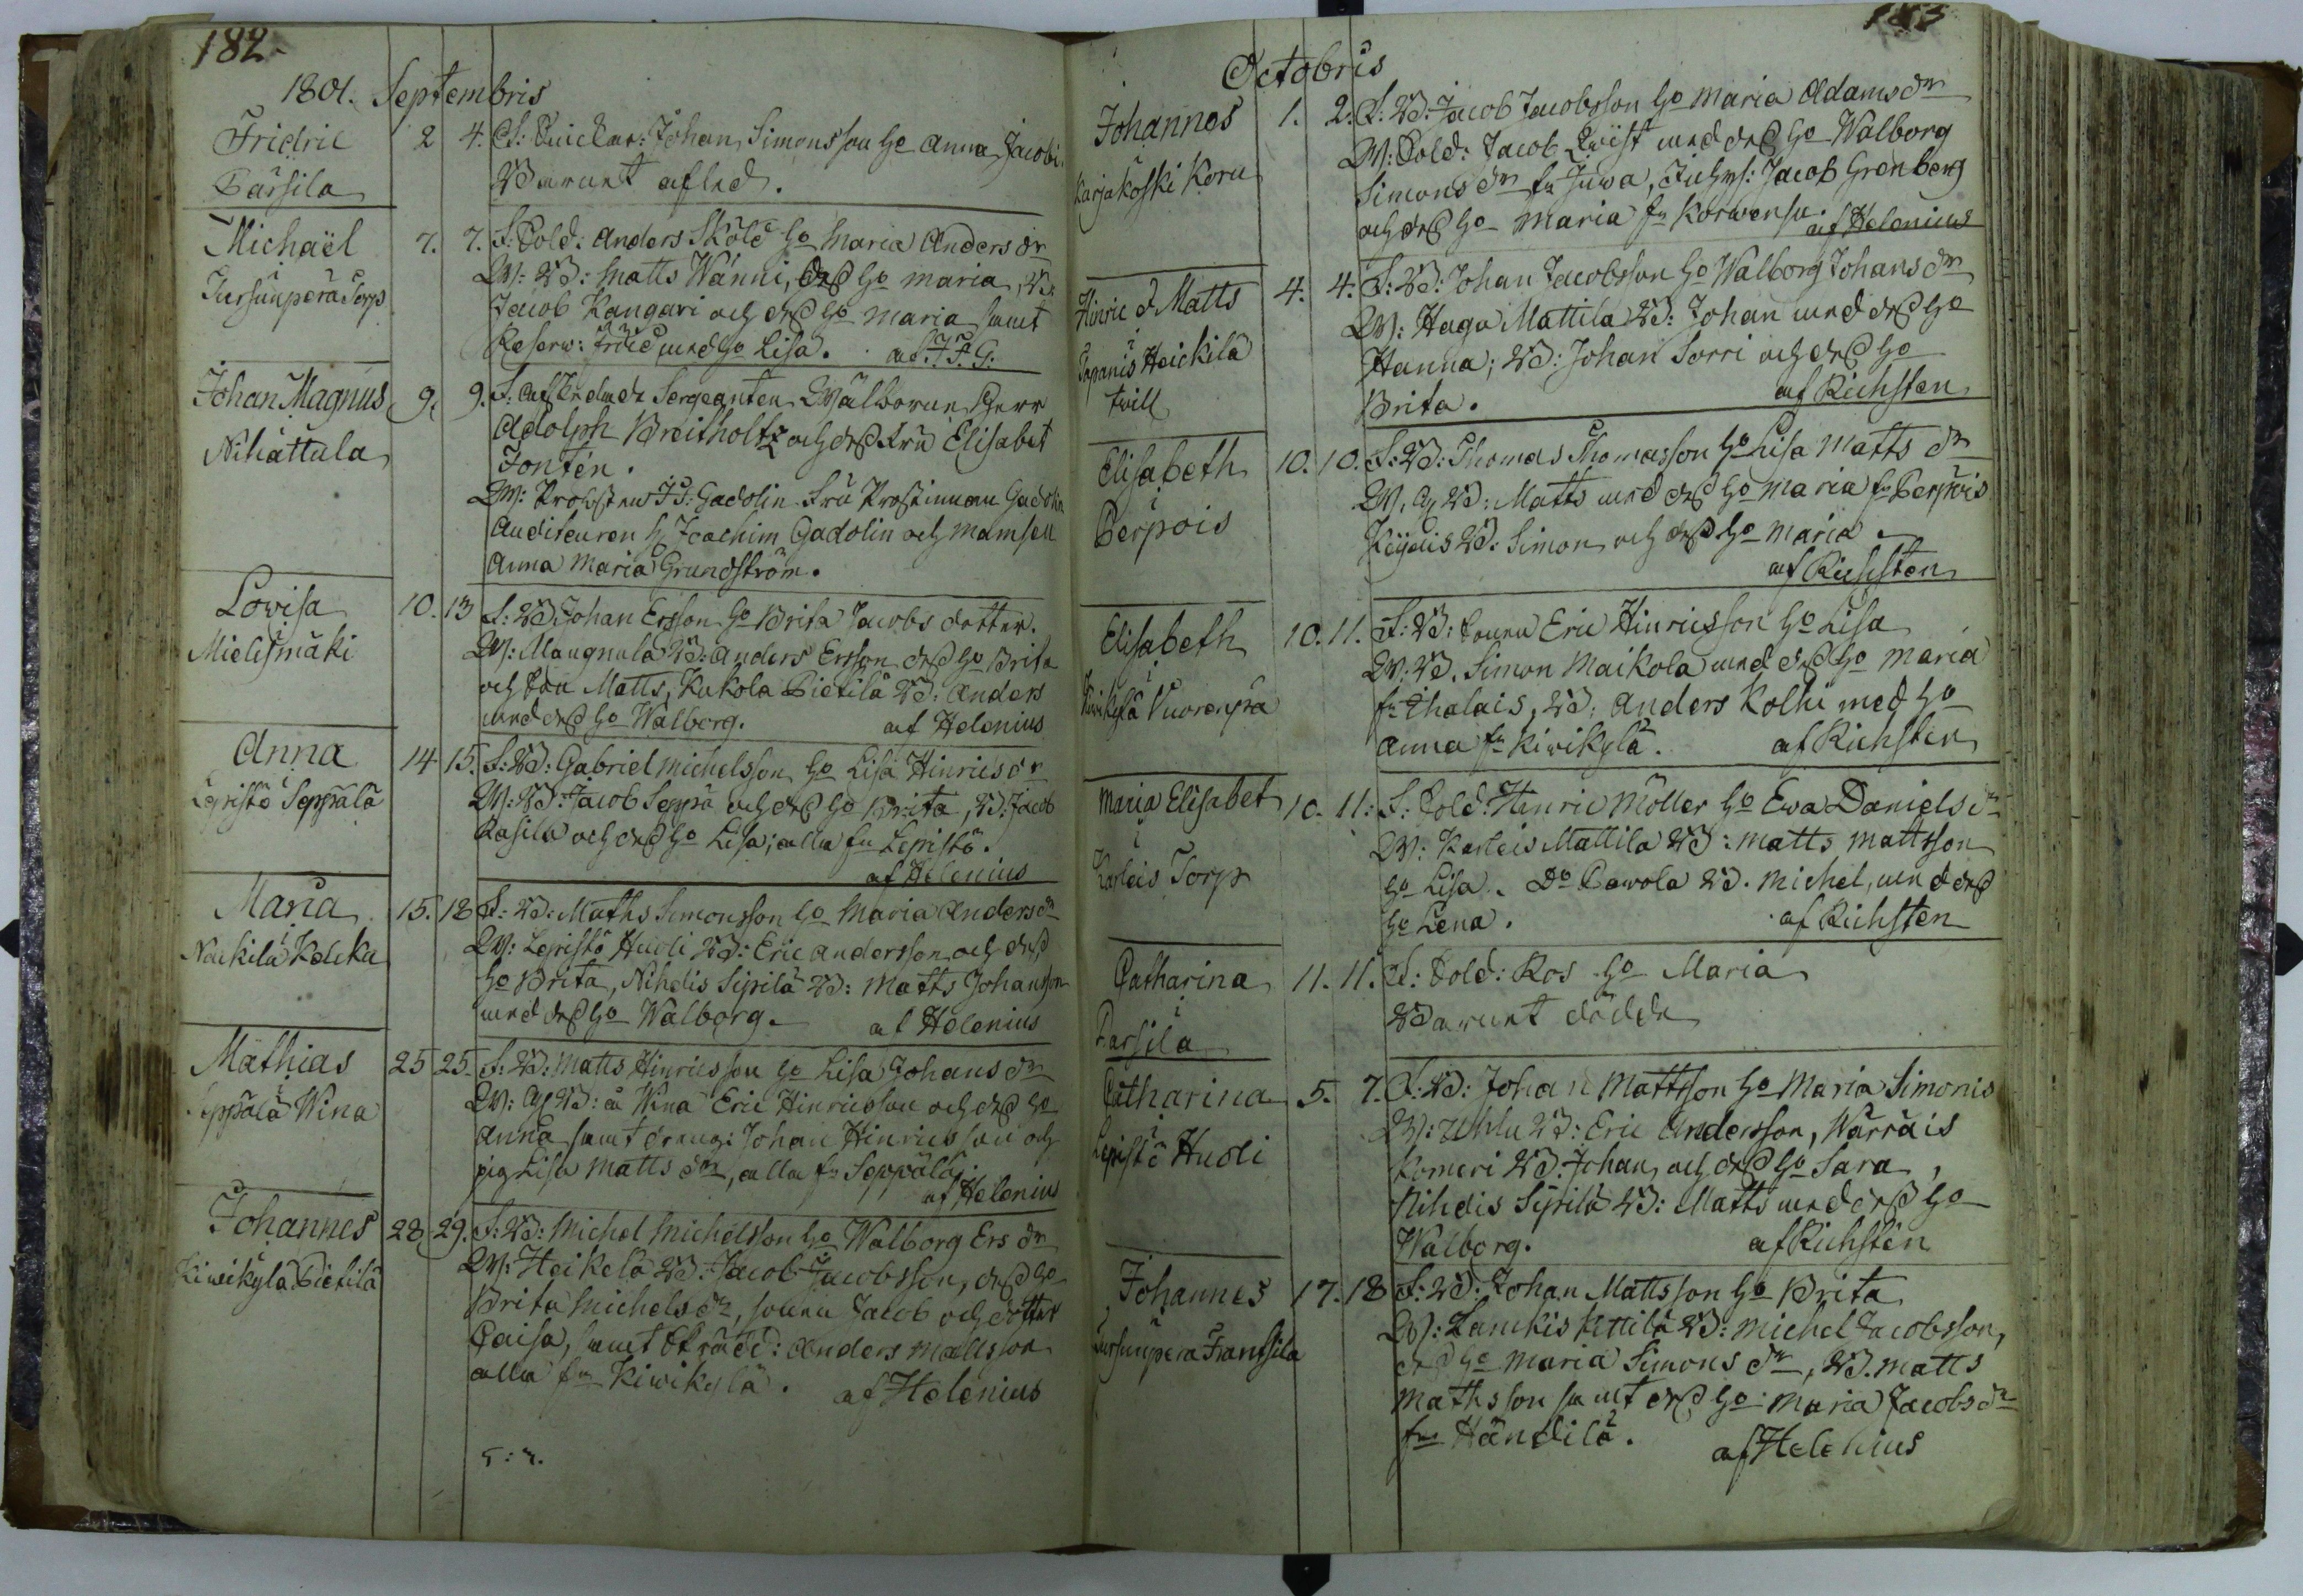 182
1801. Septembris
Fridric
Pärsilä
2 4. F: Johan Simonsson Ho Anna Jacobi
Barnet afled.
Michaël
i
Jursunperä Torp
7. 7. F: Sold: Anders Sköld Ho Maria Andersdr
W: B: Matts Wänni, dess Ho Maria, B:
Jacob Kangari och dess Ho Maria samt
Reserv: Frid med Ho Lisa. af J. F. G.
Johan Magnus
i
Nihattula
9. 9. F: Sergeanten Wälborne Herr
Adolph Breitholtz och dess Fru Elisabet
Fontén.
W: Probsten Gadolin Fru Prostinnan Gadolin
Auditeuren H Joachim Gadolin och Mamsell
Anna Maria Grundström.
Lovisa
i
Mielismäki
10. 13 F: B Johan Ersson Ho Brita Jacobs dotter.
W: Maugnula B: Anders Ersson dess Ho Brita
och Son Matts, Kukola Pietilä B: Anders
med dess Ho Walborg. af Helenius
Anna
i
Lepistö Seppälä
14 15. F: B: Gabriel Michelsson Ho Lisa Hinricsdr
W: B: Jacob Seppä och dess Ho Brita, B: Jacob
Rasila och dess Ho Lisa; alla fn Lepistö.
af Helenius
Maria
i
Naukila Kdeka
15. 18 F: B: Maths Simonsson Ho Maria Andersdr
W: Lepistö Hudi B: Eric Andersson och dess
Ho Brita, Nihdis Sipilä B: Matts Johansson
med dess Ho Walborg. af Helenius
Mathias
i
Seppälä Wina
25 25. F: B: Matts Hinricsson Ho Lisa Johansdr
W: B: å Wina Eric Hinricsson och dess Ho
Anna samt dräng: Johan Hinricsson och
pig Lisa Mattsdr, alla fn Seppälä.
af Helenius
Johannes
i
Kiwikylä Pietilä
28 29. F: B: Michel Michelsson Ho Walborg Ersdr
W: Heikelä B: Jacob Jacobsson, dess Ho
Brita Michelsdr, sonen Jacob och dotter
Caisa, samt Anders Mattsson
alla fn Kiwikylä. af Helenius
5: 7.
183
Octobris
Johannes
i
Karjakoski Koru
1. 2. F: B: Jacob Jacobsson Ho Maria Adamsdr
W: Sold: Jacob Qvist med dess Ho Walborg
Simonsdr fn Juva, Jacob Grenberg
och dess Ho Maria fn Korwensu. af Helenius
Hinric & Matts
i
Papanis Heickilä
twill
4. 4. F: B: Johan Jacobsson Ho Walborg Johansdr
W: Hagu Mattila B: Johan med dess Ho
Hanna; B: Johan Sorri och dess Ho
Brita. af Richstén
Elisabeth
i
Perpois
10. 10. F: B: Thomas Thomasson Ho Lisa Mattsdr
W. B: Matts med dess Ho Maria fn Perpois
B: Simon och dess Ho Maria.
af Richstén
Elisabeth
i
Kiwikylä Vuorenpä
10. 11. F: B: Sonen Eric Hinricsson Ho Lisa
W: B. Simon Maikola med dess Ho Maria
fn Ihalais, B: Anders Kolhi med Ho
Anna fn Kiwikylä. af Richsten
Maria Elisabet
i
Karleis Torp
10. 11. F: Sold: Henric Möller Ho Ewa Danielsdr
W: Karleis Mattila B: Matts Mattsson
Ho Lisa. Do Pawola B. Michel, med dess
Ho Lena. af Richsten
Catharina
i
Parsila
11. 11. F: Sold: Ros Ho Maria
Barnet dödde
Catharina
i
Lepistö Hudi
5. 7. F: B: Johan Mattsson Ho Maria Simonis
W: Uhlu B: Eric Andersson, Wärräis
Komeri B. Johan och dess Ho Sara,
Nihdis Sipilä B: Matts med dess Ho
Walborg. af Richstén
Johannes
i
Jursunperä Frantsila
17. 18 F: B: Johan Mattsson Ho Brita
W: Lamckis Kittilä B: Michel Jacobsson,
dess Ho Maria Simonsdr, B. Matts
Mathsson samt dess Ho Maria Jacobsdr
fn Händilä. af Helenius